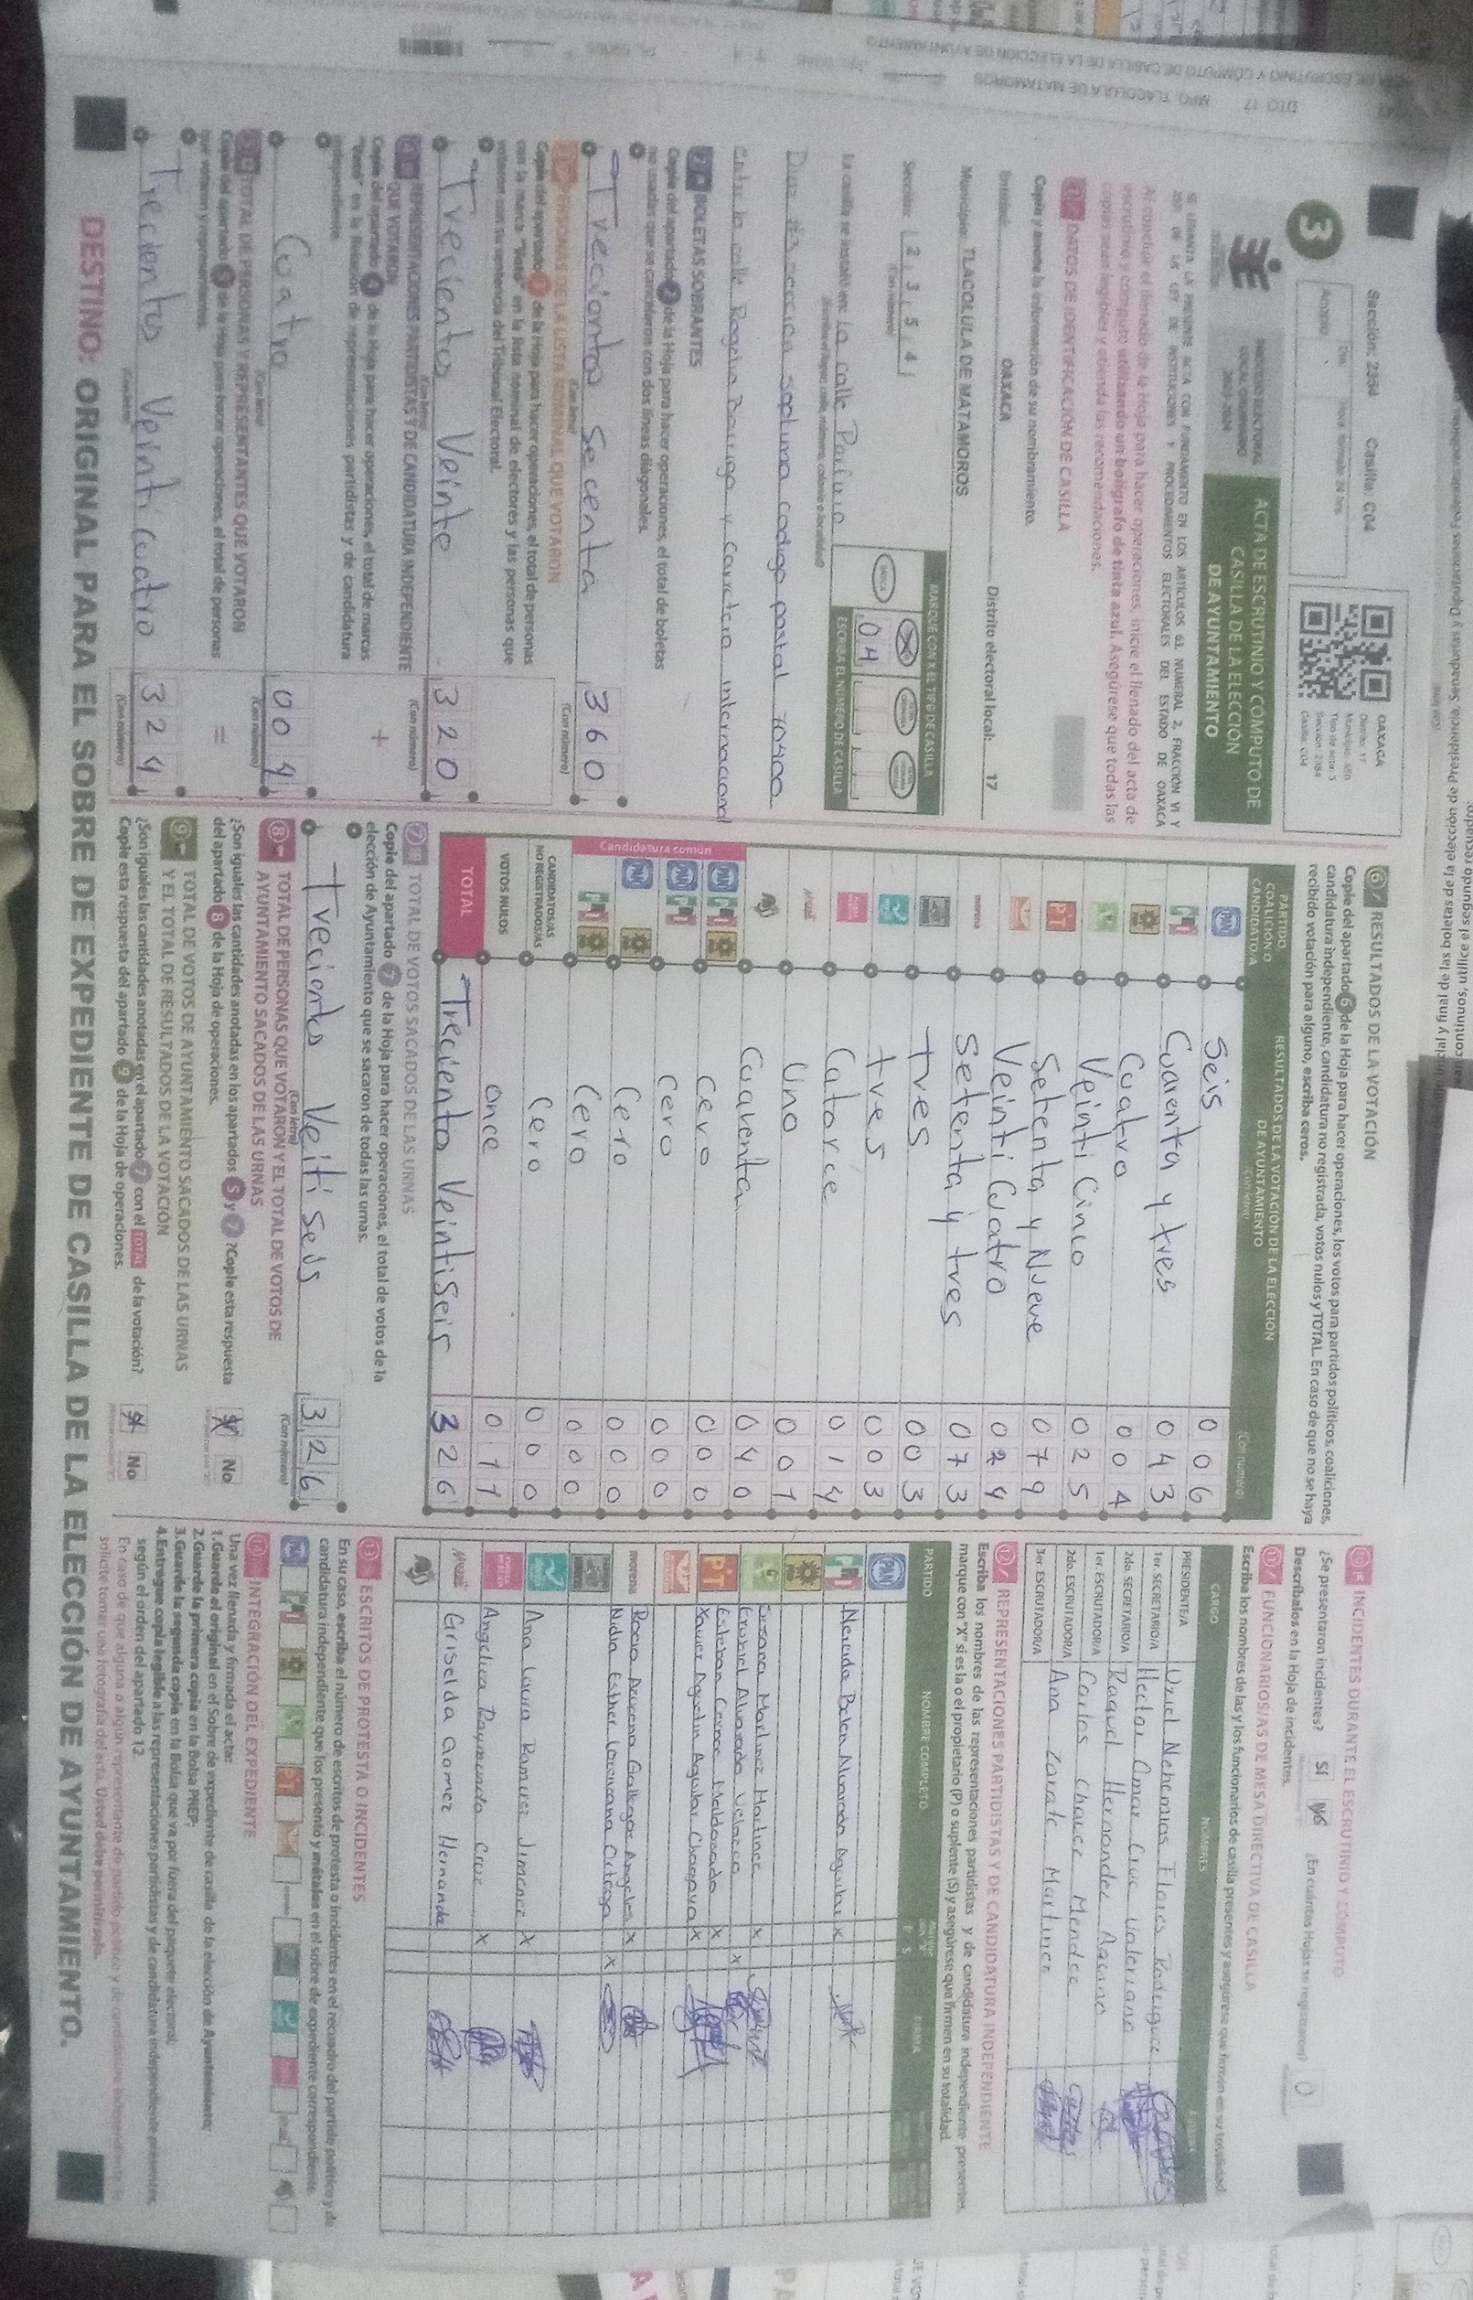 Sección: 2354 Casilla: C04
3
PROCESO ELECTORAL
LOCAL ORDINARIO
2023-2024
ACTA DE ESCRUTINIO Y CÓMPUTO DE
CASILLA DE LA ELECCIÓN
DE AYUNTAMIENTO
OAXACA
Distrito: 17
Sección: 2354
Casilla: C04
SE LEVANTA LA PRESENTE ACTA CON FUNDAMENTO EN LOS ARTÍCULOS 63, NUMERAL 2, FRACCIÓN VI Y
DE LA LEY DE INSTITUCIONES Y PROCEDIMIENTOS ELECTORALES DEL ESTADO DE OAXACA
Al concluir el llenado de la Hoja para hacer operaciones, inicie el llenado del acta de
escrutinio y cómputo utilizando un bolígrafo de tinta azul. Asegúrese que todas las
copias sean legibles y atienda las recomendaciones.
1 DATOS DE IDENTIFICACIÓN DE CASILLA
Copie y anote la información de su nombramiento.
Entidad: OAXACA Distrito electoral local: 17
Municipio: TLACOLULA DE MATAMOROS
Sección: 2 3 5 4
(Con número)
MARQUE CON X EL TIPO DE CASILLA
ESCRIBA EL NÚMERO DE CASILLA
04
La casilla se instaló en: La calle Porfirio
Diaz #3 seccion septima codigo postal 70400
entre la calle Rogelio Barriga y Carretera internacional
2 BOLETAS SOBRANTES
Copie del apartado 2 de la Hoja para hacer operaciones, el total de boletas
no usadas que se cancelaron con dos líneas diagonales.
Trecientos Secenta 360
(Con letra) (Con número)
3 PERSONAS DE LA LISTA NOMINAL QUE VOTARON
Copie del apartado 3 de la Hoja para hacer operaciones, el total de personas
con la marca "Votó" en la lista nominal de electores y las personas que
votaron con su sentencia del Tribunal Electoral.
Trecientos Veinte 320
(Con letra) (Con número)
4 REPRESENTACIONES PARTIDISTAS Y DE CANDIDATURA INDEPENDIENTE
QUE VOTARON
Copie del apartado 4 de la Hoja para hacer operaciones, el total de marcas
"Votó" en la Relación de representaciones partidistas y de candidatura
independiente.
+
Cuatro 004
(Con letra) (Con número)
5 TOTAL DE PERSONAS Y REPRESENTANTES QUE VOTARON
Copie del apartado 5 de la Hoja para hacer operaciones, el total de personas
que votaron y representantes.
=
Trecientos Veinti cuatro 324
(Con letra) (Con número)
6 RESULTADOS DE LA VOTACIÓN
Copie del apartado 6 de la Hoja para hacer operaciones, los votos para partidos políticos, coaliciones,
candidatura independiente, candidatura no registrada, votos nulos y TOTAL. En caso de que no se haya
recibido votación para alguno, escriba ceros.
PARTIDO, COALICIÓN O CANDIDATO/A
RESULTADOS DE LA VOTACIÓN DE LA ELECCIÓN
DE AYUNTAMIENTO
(Con letra) (Con número)
PAN Seis 006
PRI Cuarenta y tres 043
Cuatro 004
Veinti Cinco 025
PT Setenta y Nueve 079
Veinti Cuatro 024
morena Setenta y tres 073
tres 003
tres 003
Catorce 014
Uno 001
Cuarenta 040
Candidatura común
Cero 000
Cero 000
Cero 000
Cero 000
CANDIDATOS/AS
NO REGISTRADOS/AS Cero 000
VOTOS NULOS once 011
TOTAL Treciento Veintiseis 326
7 TOTAL DE VOTOS SACADOS DE LAS URNAS
Copie del apartado 7 de la Hoja para hacer operaciones, el total de votos de la
elección de Ayuntamiento que se sacaron de todas las urnas.
Trecientos Veiti seis 326
(Con letra) (Con número)
8 TOTAL DE PERSONAS QUE VOTARON Y EL TOTAL DE VOTOS DE
AYUNTAMIENTO SACADOS DE LAS URNAS
¿Son iguales las cantidades anotadas en los apartados 5 y 7? Cople esta respuesta
del apartado 8 de la Hoja de operaciones. No
9 TOTAL DE VOTOS DE AYUNTAMIENTO SACADOS DE LAS URNAS
Y EL TOTAL DE RESULTADOS DE LA VOTACIÓN
¿Son iguales las cantidades anotadas en el apartado 7 con el TOTAL de la votación?
Cople esta respuesta del apartado 9 de la Hoja de operaciones. No
10 INCIDENTES DURANTE EL ESCRUTINIO Y CÓMPUTO
¿Se presentaron incidentes? Sí No ¿En cuántas Hojas se registraron? 0
Descríbalos en la Hoja de incidentes.
11 FUNCIONARIOS/AS DE MESA DIRECTIVA DE CASILLA
Escriba los nombres de las y los funcionarios de casilla presentes y asegúrese que firmen en su totalidad.
CARGO NOMBRES FIRMA
PRESIDENTE/A Uziel Nehemias Flores Rodriguez
1er. SECRETARIO/A Hector Omar Cruz Valeriano
2do. SECRETARIO/A Raquel Hernandez Aquino
1er. ESCRUTADOR/A Carlos Chavez Mendez
2do. ESCRUTADOR/A Ana Zarate Martinez
3er. ESCRUTADOR/A
12 REPRESENTACIONES PARTIDISTAS Y DE CANDIDATURA INDEPENDIENTE
Escriba los nombres de las representaciones partidistas y de candidatura independiente presentes,
marque con "X" si es la o el propietario (P) o suplente (S) y asegúrese que firmen en su totalidad.
PARTIDO NOMBRE COMPLETO P S FIRMA
PAN
PRI Nereida Belen Alvarado Aguilar X
Susana Martinez Martinez X
Alvarado Velasco X
PT Esteban Maldonado X
Xavier Aguilar X
morena Rocio Azucena Gallegos Angeles X
Nidia Esther Lorenzana Ortega X
Ana Laura Ramirez Jimenez X
Angelica Raymundo Cruz X
Griselda Gomez Hernandez
13 ESCRITOS DE PROTESTA O INCIDENTES
En su caso, escriba el número de escritos de protesta o incidentes en el recuadro del partido político y de
candidatura independiente que los presentó y métalos en el sobre de expediente correspondiente.
14 INTEGRACIÓN DEL EXPEDIENTE
Una vez llenada y firmada el acta:
1. Guarde el original en el Sobre de expediente de casilla de la elección de Ayuntamiento;
2. Guarde la primera copia en la Bolsa PREP;
3. Guarde la segunda copia en la Bolsa que va por fuera del paquete electoral;
4. Entregue copia legible a las representaciones partidistas y de candidatura independiente presentes,
según el orden del apartado 12.
En caso de que alguna o algún representante de partido político y de candidatura independiente le
solicite tomar una fotografía del acta, Usted debe permitírselo.
DESTINO: ORIGINAL PARA EL SOBRE DE EXPEDIENTE DE CASILLA DE LA ELECCIÓN DE AYUNTAMIENTO.